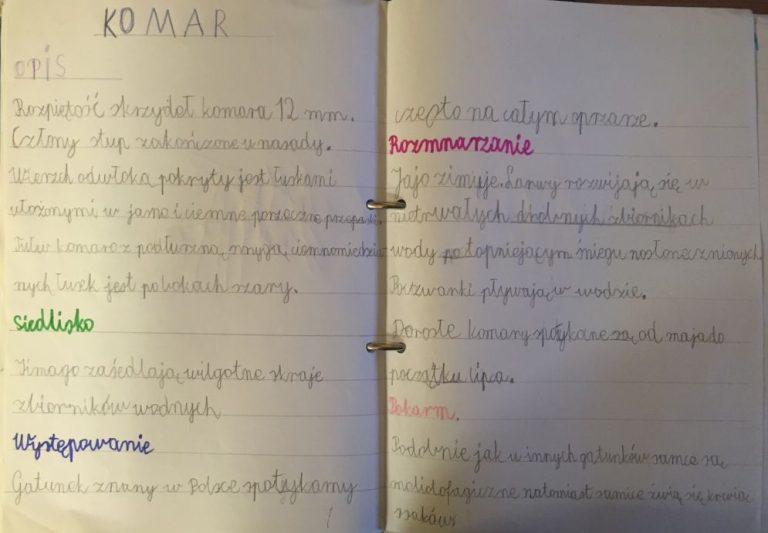 KOMAR
OPIS
Rozpiętość skrzydeł komara 12 mm.
Człony stup zakończone u nasady.
Wierzch odwłoka pokryty jest łuskami
ułożonymi w jasne i ciemne poprzeczne przepaski.
Tułów komara z podłużną smugą ciemnomiedzia
nych łusek jest po bokach szary.
Siedlisko
Imago zasiedlają wilgotne skraje
zbiorników wodnych
Występowanie
Gatunek znany w Polsce spotykamy
1
często na całym oprzaże.
Rozmnarzanie
Jajo zimuje. Larwy rozwijają się w
nietrwałych drobnych zbiornikach
wody po topniejącym śniegu nasłonecznionych
Poczwanki pływają w wodzie.
Dorosłe komary spotykane są od maja do
początku lipca.
Pokarm.
Podobnie jak u innych gatunków samce są
molidofagiczne natomiast samice żywią się krwią
ssaków